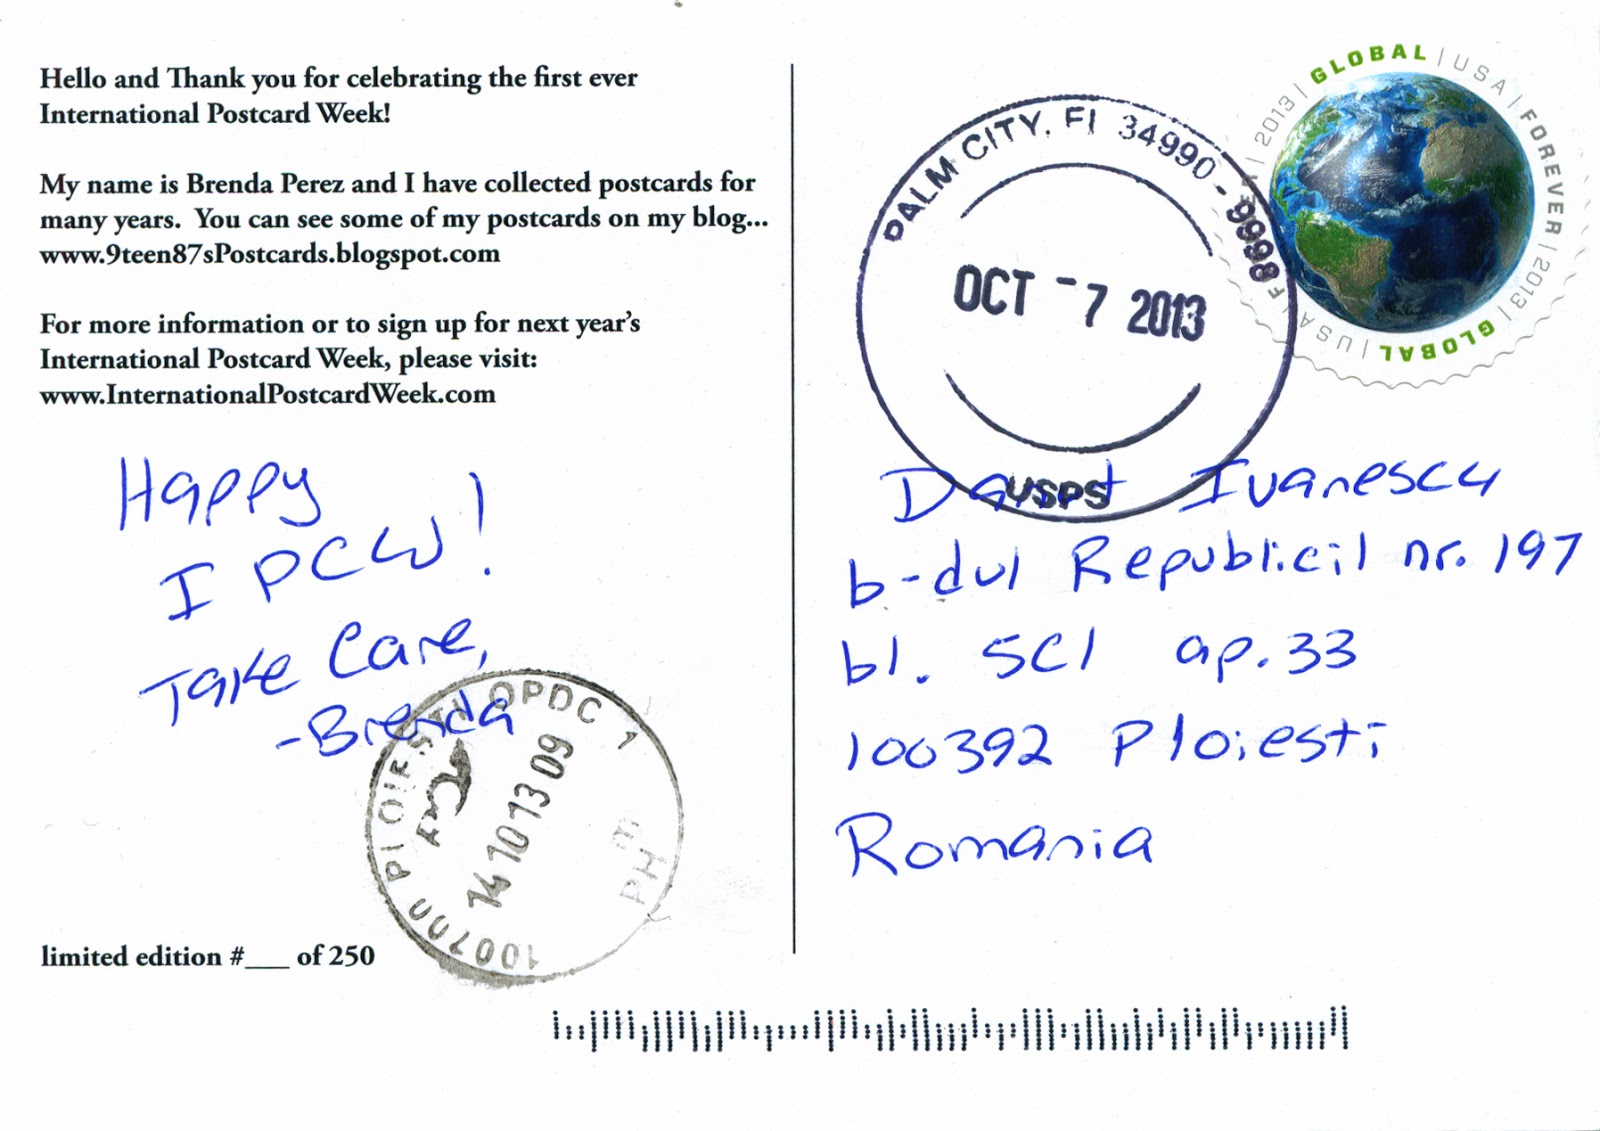 Hello and Thank you for celebrating the first ever
International Postcard Week!
My name is Brenda Perez and I have collected postcards for
many years. You can see some of my postcards on my blog...
www.9teen87sPostcards.blogspot.com
For more information or to sign up for next year's
International Postcard Week, please visit:
www.InternationalPostcardWeek.com
Happy
I PCW!
Take Care,
-Brenda
limited edition #___ of 250
100700 PLOIESTI OPDC 1
14 10 13 09
PALM CITY, Fl 34990-9998
OCT -7 2013
USPS
GLOBAL | USA | FOREVER | 2013 | GLOBAL | USA
2013 |
Ivanescu
b-dul Republicii nr. 197
bl. 5C1 ap. 33
100392 Ploiesti
Romania